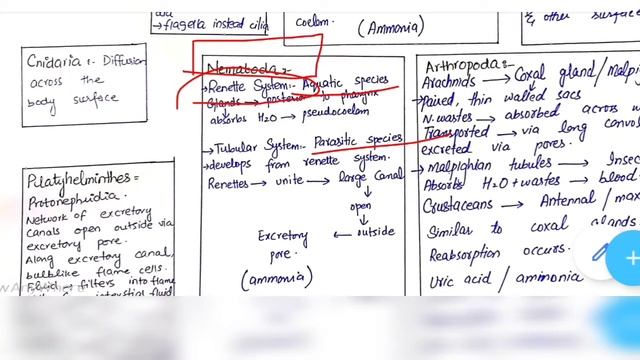 → flagella instead cilia
coelom.
(Ammonia)
& other surface
Cnidaria :- Diffusion
across the
body surface
Platyhelminthes =
Protonephridia.
Network of excretory
Canals open outside via
excretory pore.
Along excretory canal,
bulblike flame cells.
Fluid → filters into flame
Nematoda :-
→ Renette System:- Aquatic species
Glands → posterior to pharynx
absorbs H₂O → pseudocoelom
→ Tubular System:- Parasitic species
→ develops from renette system.
Renettes → unite → large Canal
↓
open
↓
Excretory ← outside
pore.
(ammonia)
Arthropoda :-
Arachnids → Coxal gland/Malpi
→ paired, thin walled sacs
N.wastes → absorbed across
Transported → via long convol
excreted via pores.
→ Malpighian tubules → Insec
Absorbs H₂O + wastes → blood
Crustaceans → Antennal/max
Similar to coxal glands
Reabsorption occurs.
Uric acid / ammonia